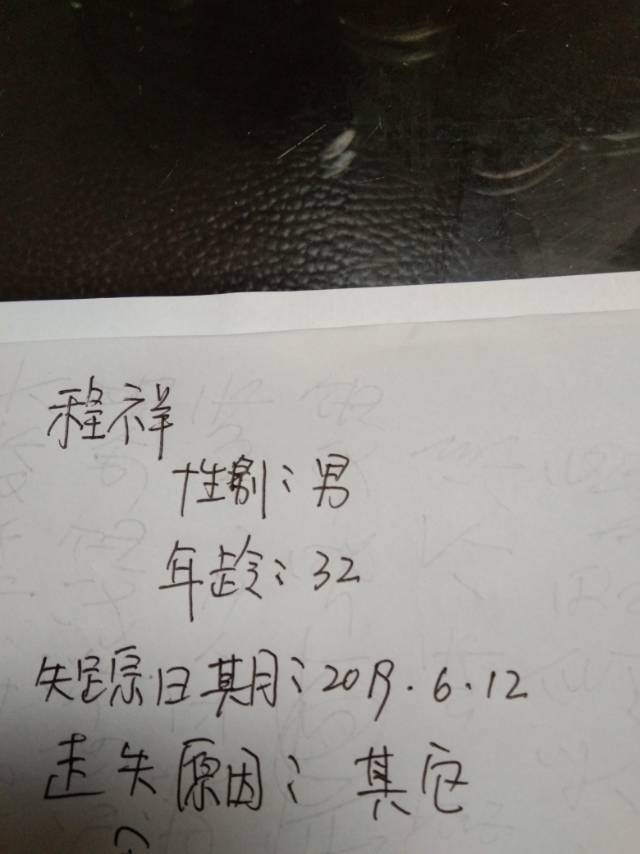 程祥
性别：男
年龄：32
失踪日期：2019.6.12
走失原因：其它